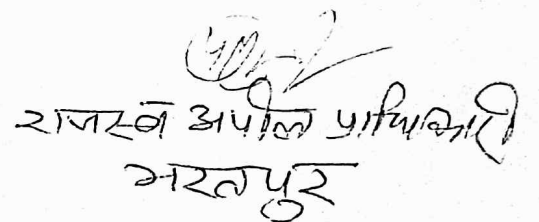 राजस्व अपील प्राधिकारी
भरतपुर